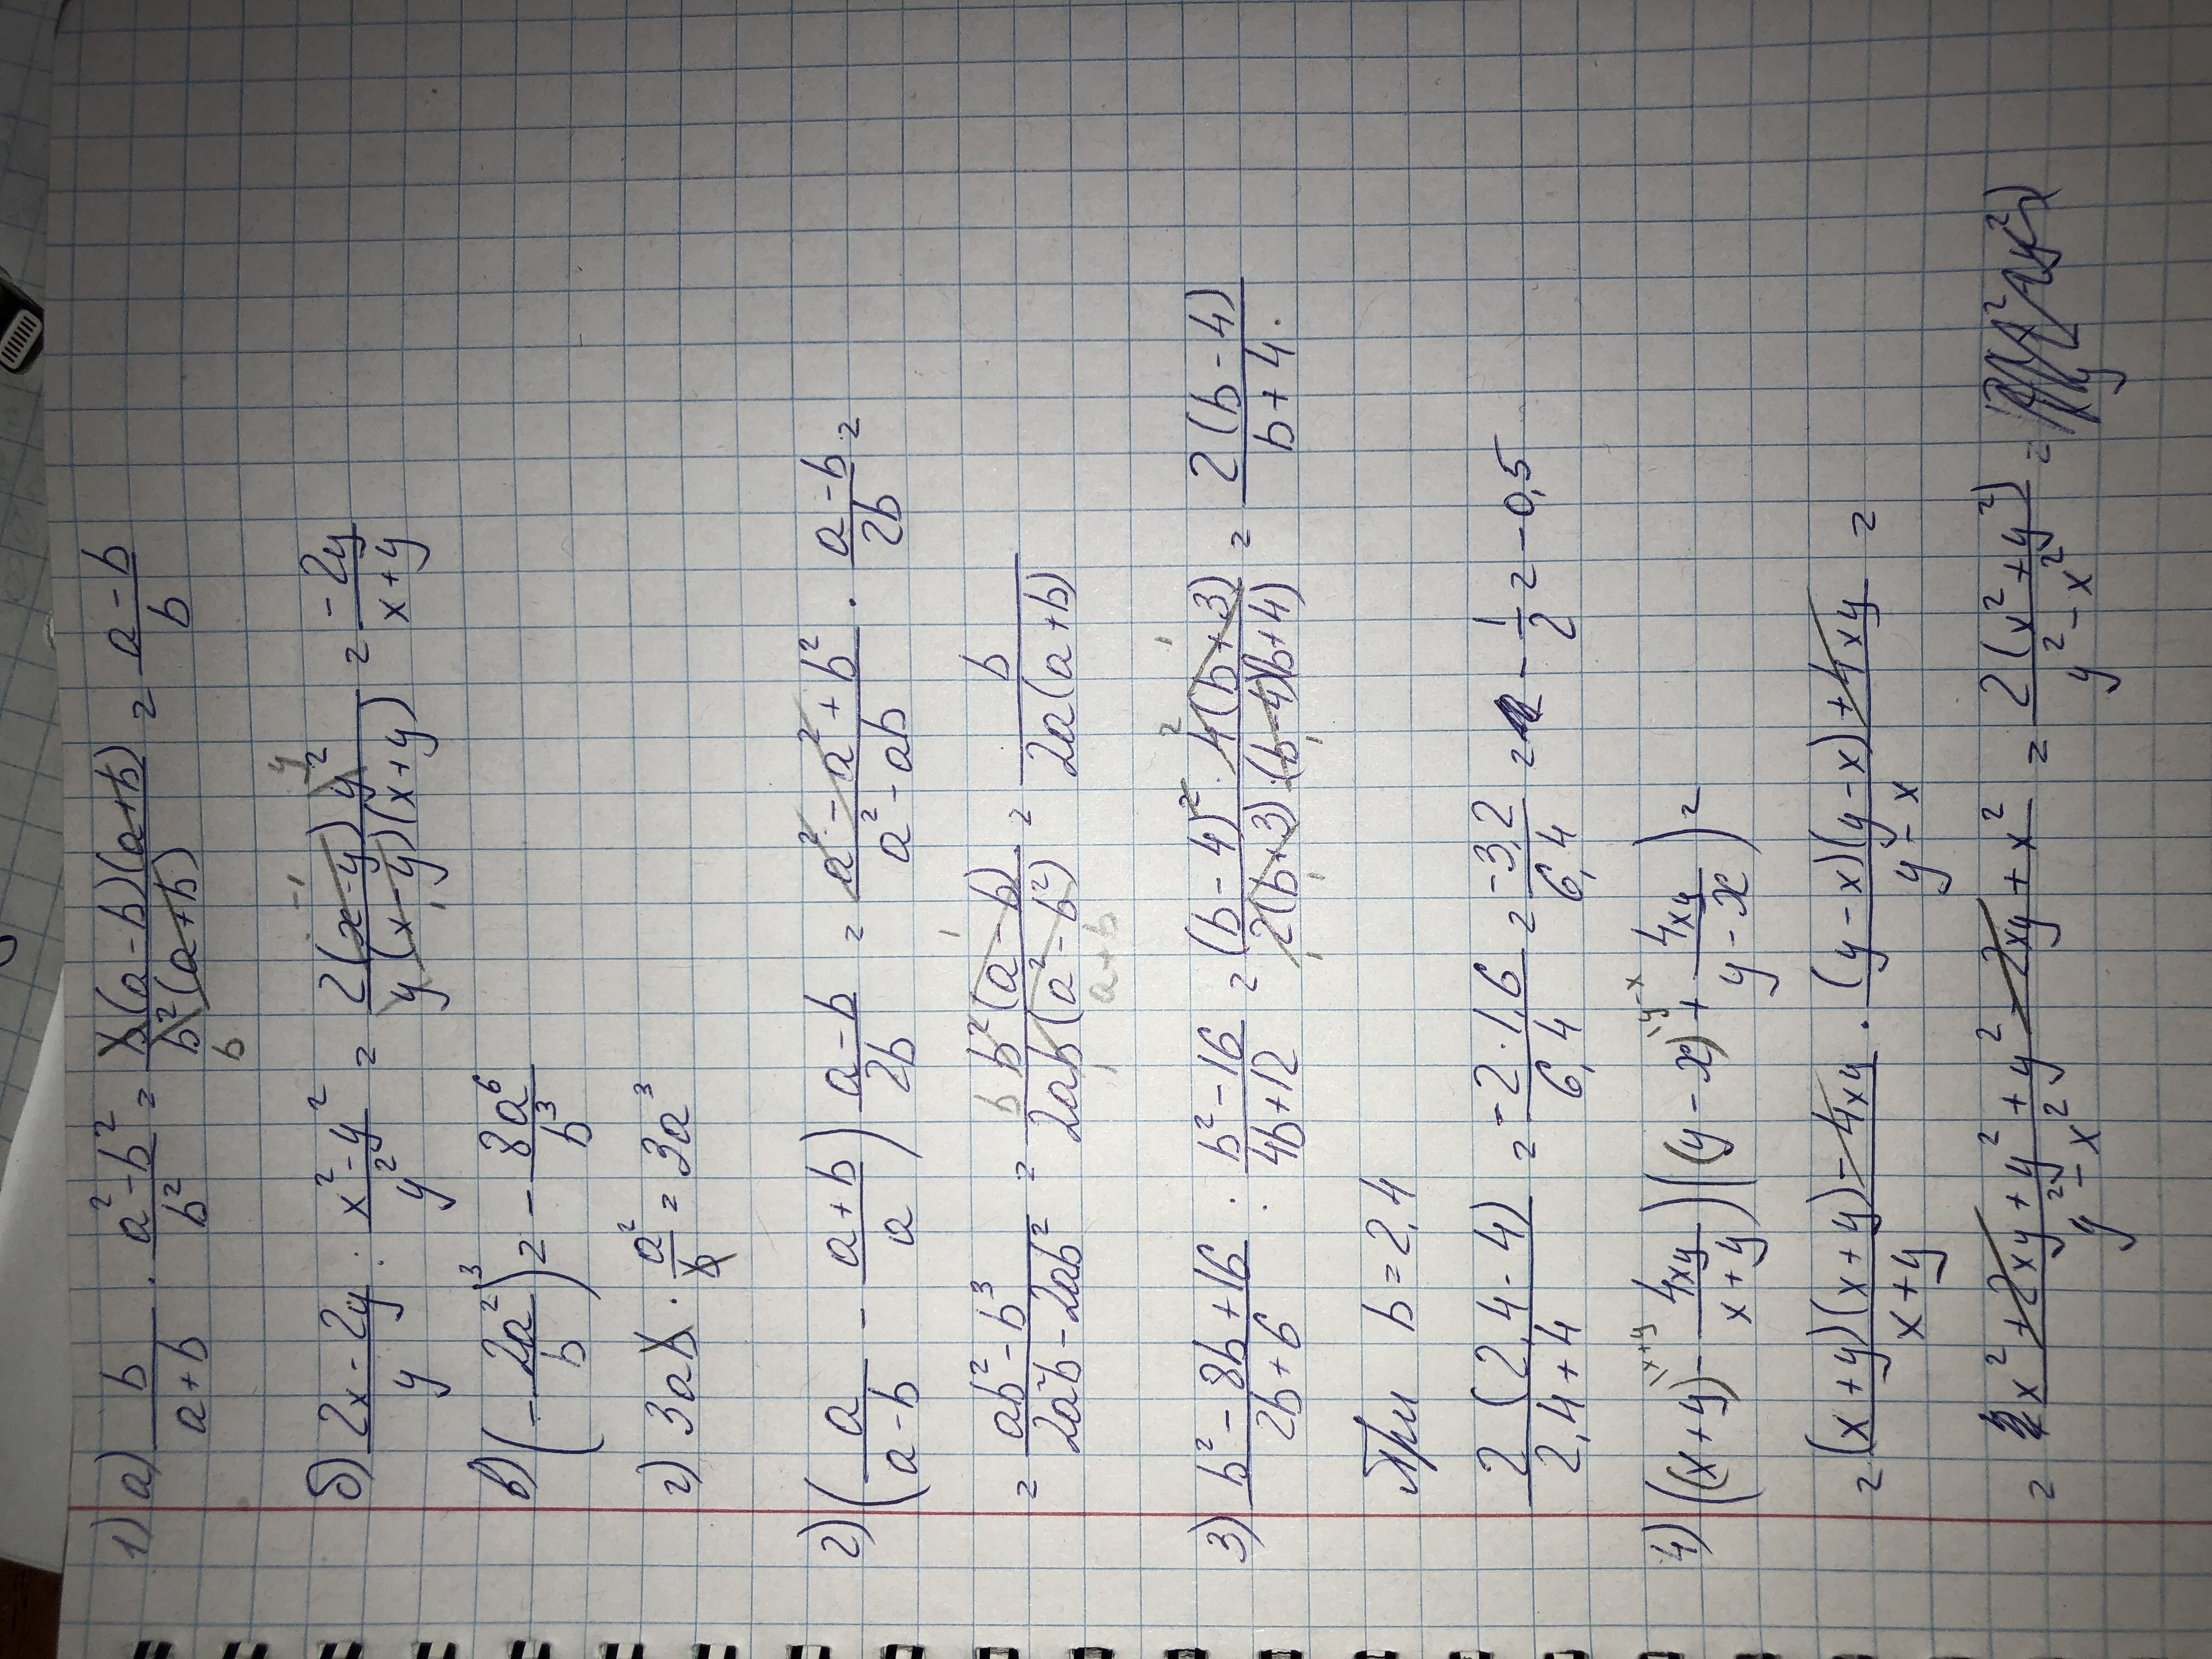 1) а) b/(a+b) · (a²-b²)/b² = b(a-b)(a+b)/(b²(a+b)) = (a-b)/b
b
-1 y
б) (2x-2y)/y : (x²-y²)/y² = 2(x-y)y²/(y(x-y)(x+y)) = -2y/(x+y)
1
в) (-2a²/b)³ = -8a⁶/b³
г) 3ab · a²/b = 3a³
2) (a/(a-b) - (a+b)/a) (a-b)/2b = (a²-a²+b²)/(a²-ab) · (a-b)/2b =
b 1
= (ab²-b³)/(2a²b-2ab²) = b²(a-b)/(2ab(a²-b²)) = b/(2a(a+b))
1 a+b
2 1
3) (b²-8b+16)/(2b+6) : (b²-16)/(4b+12) = (b-4)² · 4(b+3)/(2(b+3)·(b-4)(b+4)) = 2(b-4)/(b+4).
1 1 1
При b=2,4
2(2,4-4)/(2,4+4) = -2·1,6/6,4 = -3,2/6,4 = -1/2 = -0,5
\x+y \y-x
4) ((x+y) - 4xy/(x+y)) ((y-x) + 4xy/(y-x)) =
= ((x+y)(x+y)-4xy)/(x+y) · ((y-x)(y-x)+4xy)/(y-x) =
= (x²+2xy+y²+y²-2xy+x²)/(y²-x²) = 2(x²+y²)/(y²-x²) =